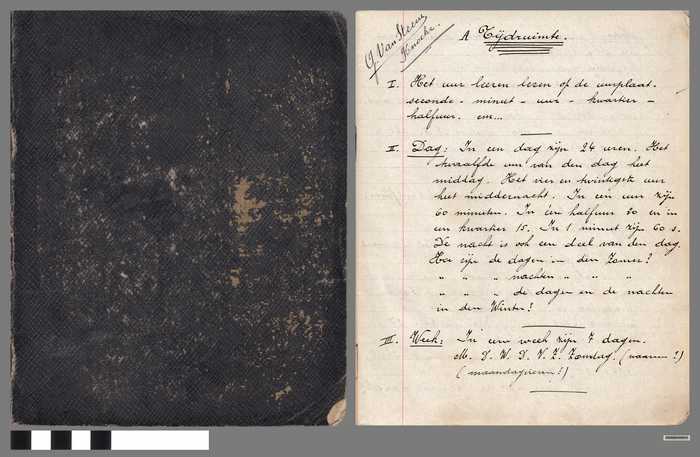 J. Van Steen
Knocke.
A Tijdruimte.
I. Het uur leeren lezen op de uurplaat.
seconde - minut - uur - kwartier -
halfuur. enz...
II. Dag: In een dag zijn 24 uren. Het
twaalfde uur van den dag heet
middag. Het vier en twintigste uur
heet middernacht. In een uur zijn
60 minuten. In één halfuur 30 en in
een kwartier 15. In 1 minut zijn 60 s.
De nacht is ook een deel van den dag.
Hoe zijn de dagen in den Zomer?
" " " nachten " " "
" " " de dagen en de nachten
in den Winter?
III. Week: In een week zijn 7 dagen.
M. D. W. D. V. Z. Zondag. (waarom?)
(maandagvieren!?)